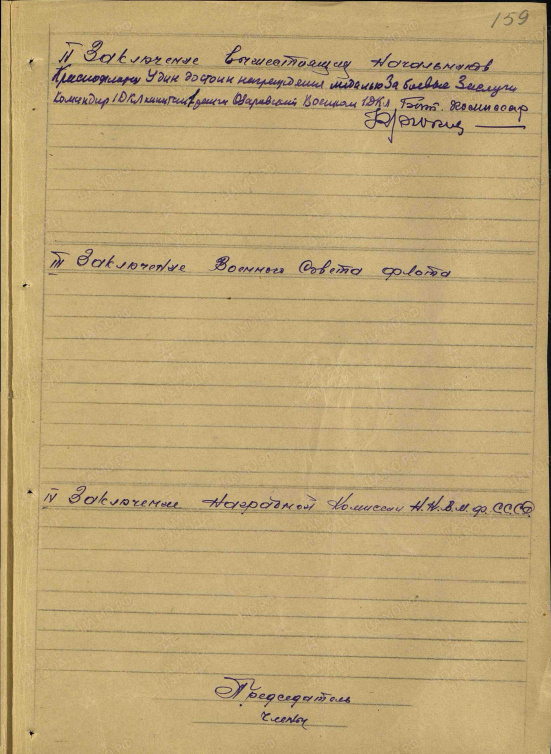 159
II Заключение вышестоящих Начальников
Краснофлотец Удин достоин награждения медалью За боевые Заслуги
Командир 1ДКЛ Военком 1ДКЛ Бат. Комиссар
III Заключение Военного Совета флота
IV Заключение Наградной Комиссии Н.К.В.М.Ф. СССР
Председатель
Члены